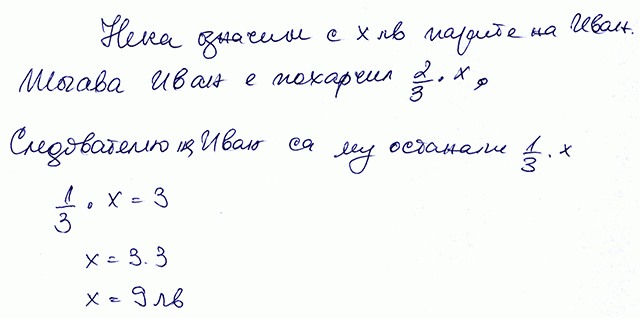 Нека означим с x лв парите на Иван.
Тогава Иван е похарчил 2/3 . x,
Следователно на Иван са му останали 1/3 . x
1/3 . x = 3
x = 3.3
x = 9 лв